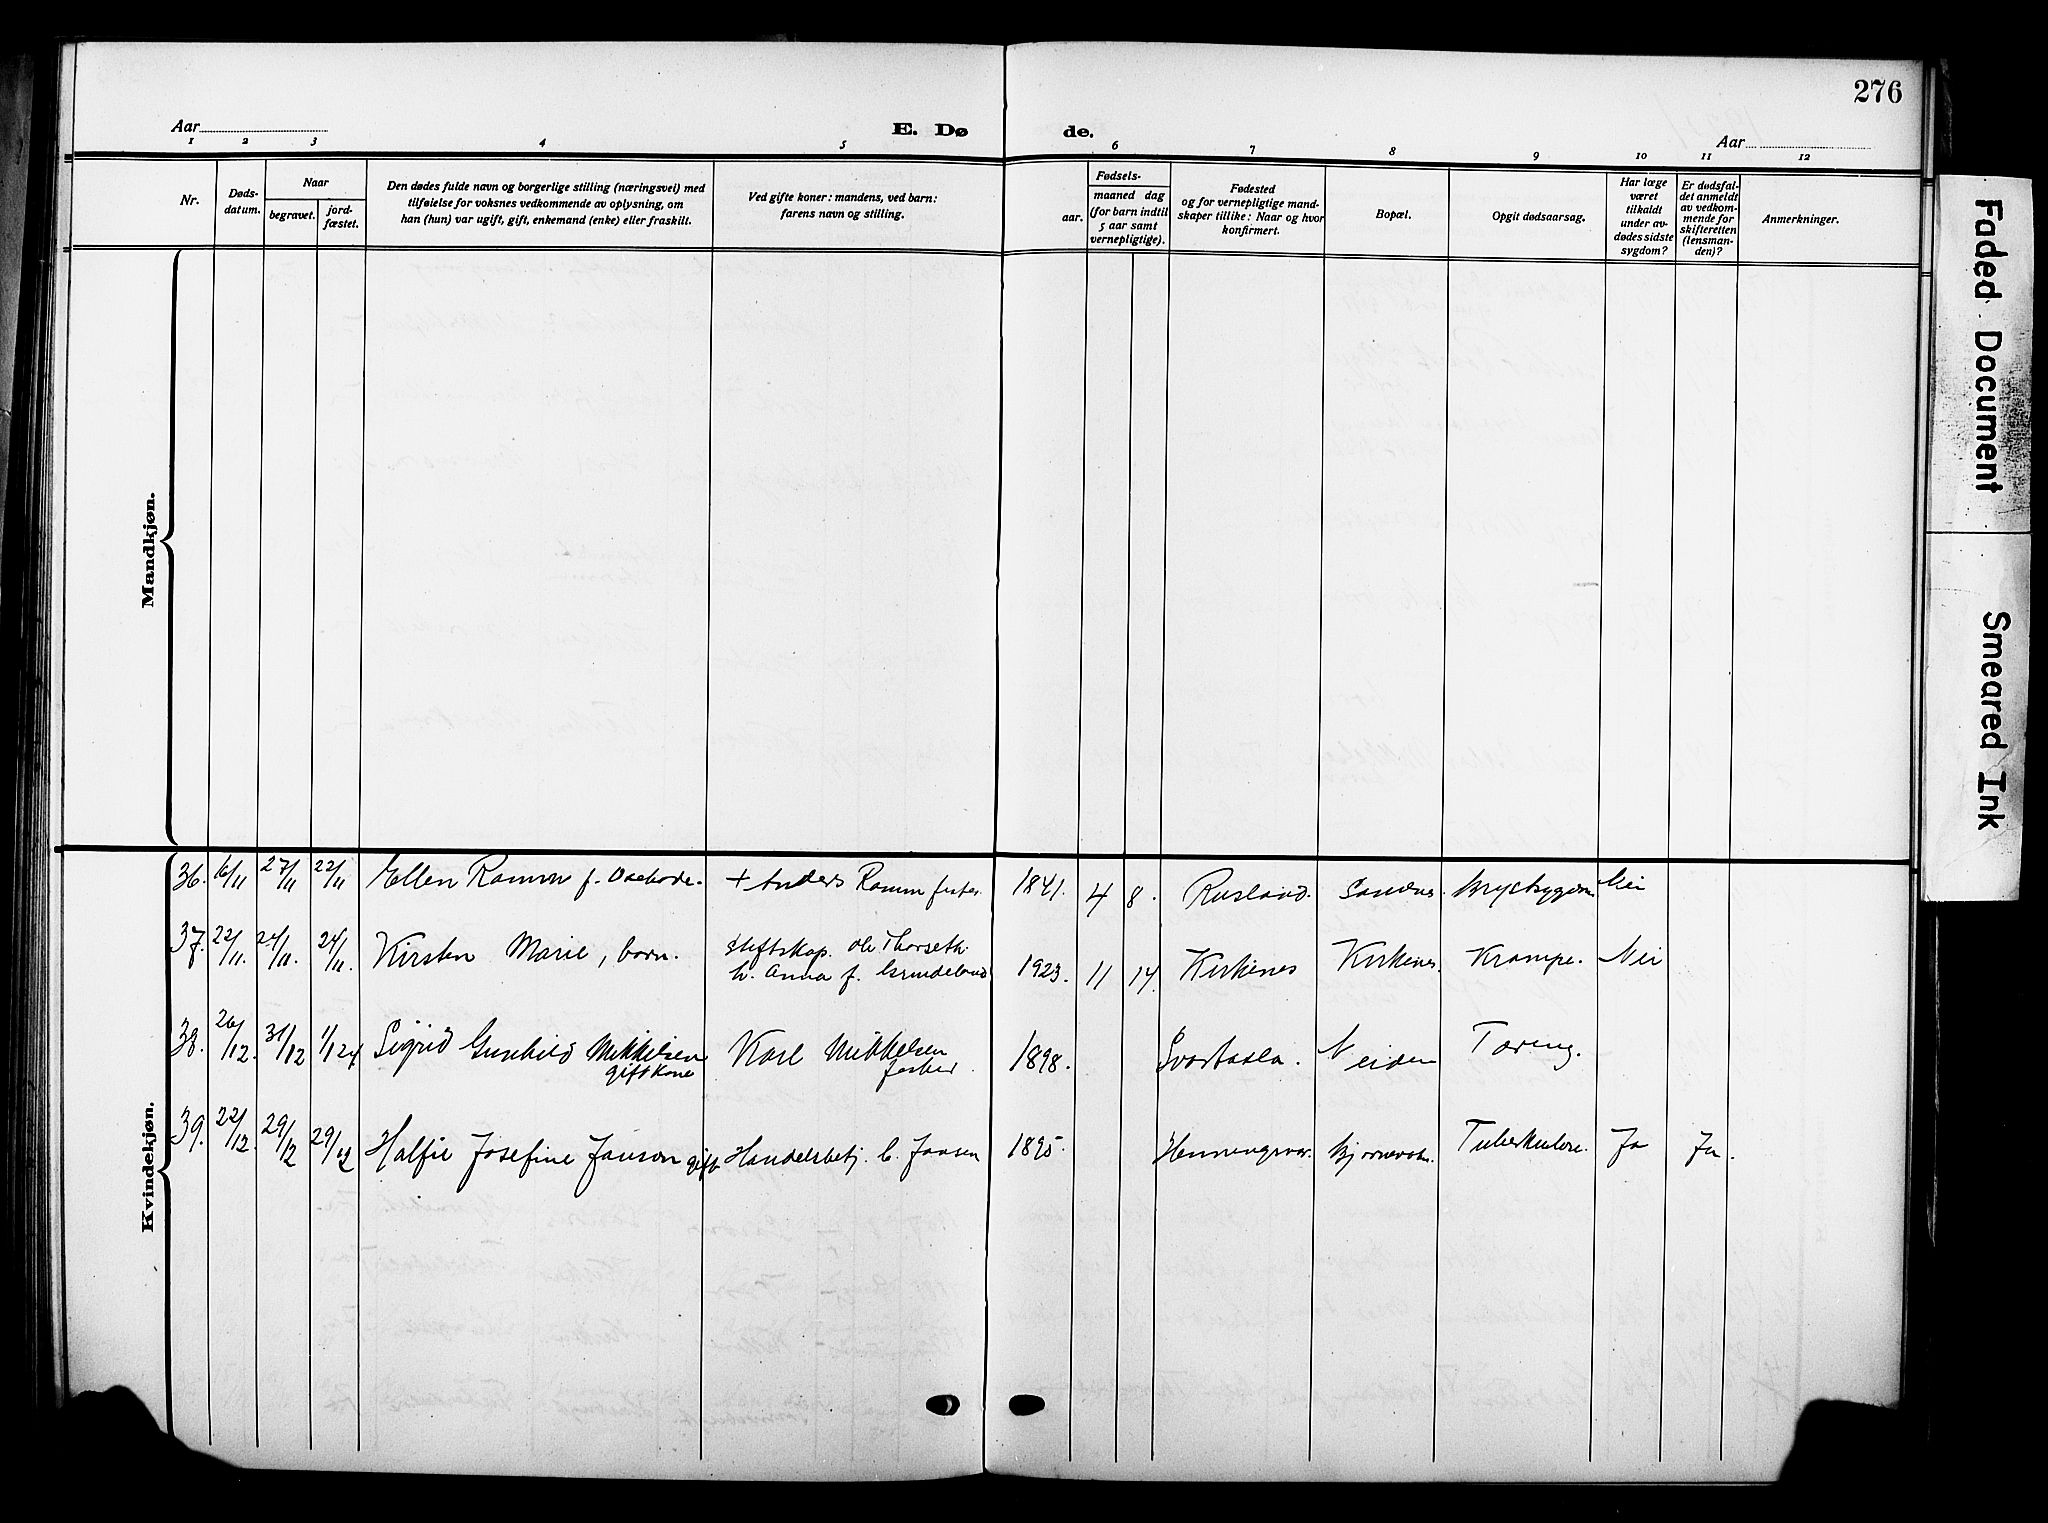 276
Aar
E. Dø
de.
Aar
1 2 3 4 5 6 7 8 9 10 11 12
Nr.
Døds-
datum.
Naar
begravet.
jord-
fæstet.
Den dødes fulde navn og borgerlige stilling (næringsvei) med
tilføielse for voksnes vedkommende av oplysning, om
han (hun) var ugift, gift, enkemand (enke) eller fraskilt.
Ved gifte koner: mandens, ved barn:
farens navn og stilling.
Fødsels-
aar.
maaned dag
(for barn indtil
5 aar samt
vernepligtige).
Fødested
og for vernepligtige mand-
skaper tillike: Naar og hvor
konfirmert.
Bopæl.
Opgit dødsaarsag.
Har læge
været
tilkaldt
under av-
dødes sidste
sygdom?
Er dødsfal-
det anmeldt
av vedkom-
mende for
skifteretten
(lensman-
den)?
Anmerkninger.
Mandkjøn.
Kvindekjøn.
36. 16/11 27/11 27/11 Ellen Ramm f. + Anders Ramm fisker 1841. 4 8. Rusland. Sandnes. Brystsygdom Nei
37. 22/11 24/11. 24/11. Kirsten Marie, barn. Stiftskap. Ole Thorseth
h. Anna f. Grindeland 1923. 11 14. Kirkenes Kirkenes. Krampe. Nei
38. 26/12. 31/12 1/1 24 Sigrid Gunhild Mikkelsen Karl Mikkelsen 1898. Neiden Tæring.
gift kone fisker.
39. 22/12. 29/12 29/12 Halfie Josefine Jansen gift Handelsbetj. C. Jansen 1895. Henningsvær. Bjørnevatn. Tuberkulose. Ja Ja.
Faded Document
Smeared Ink